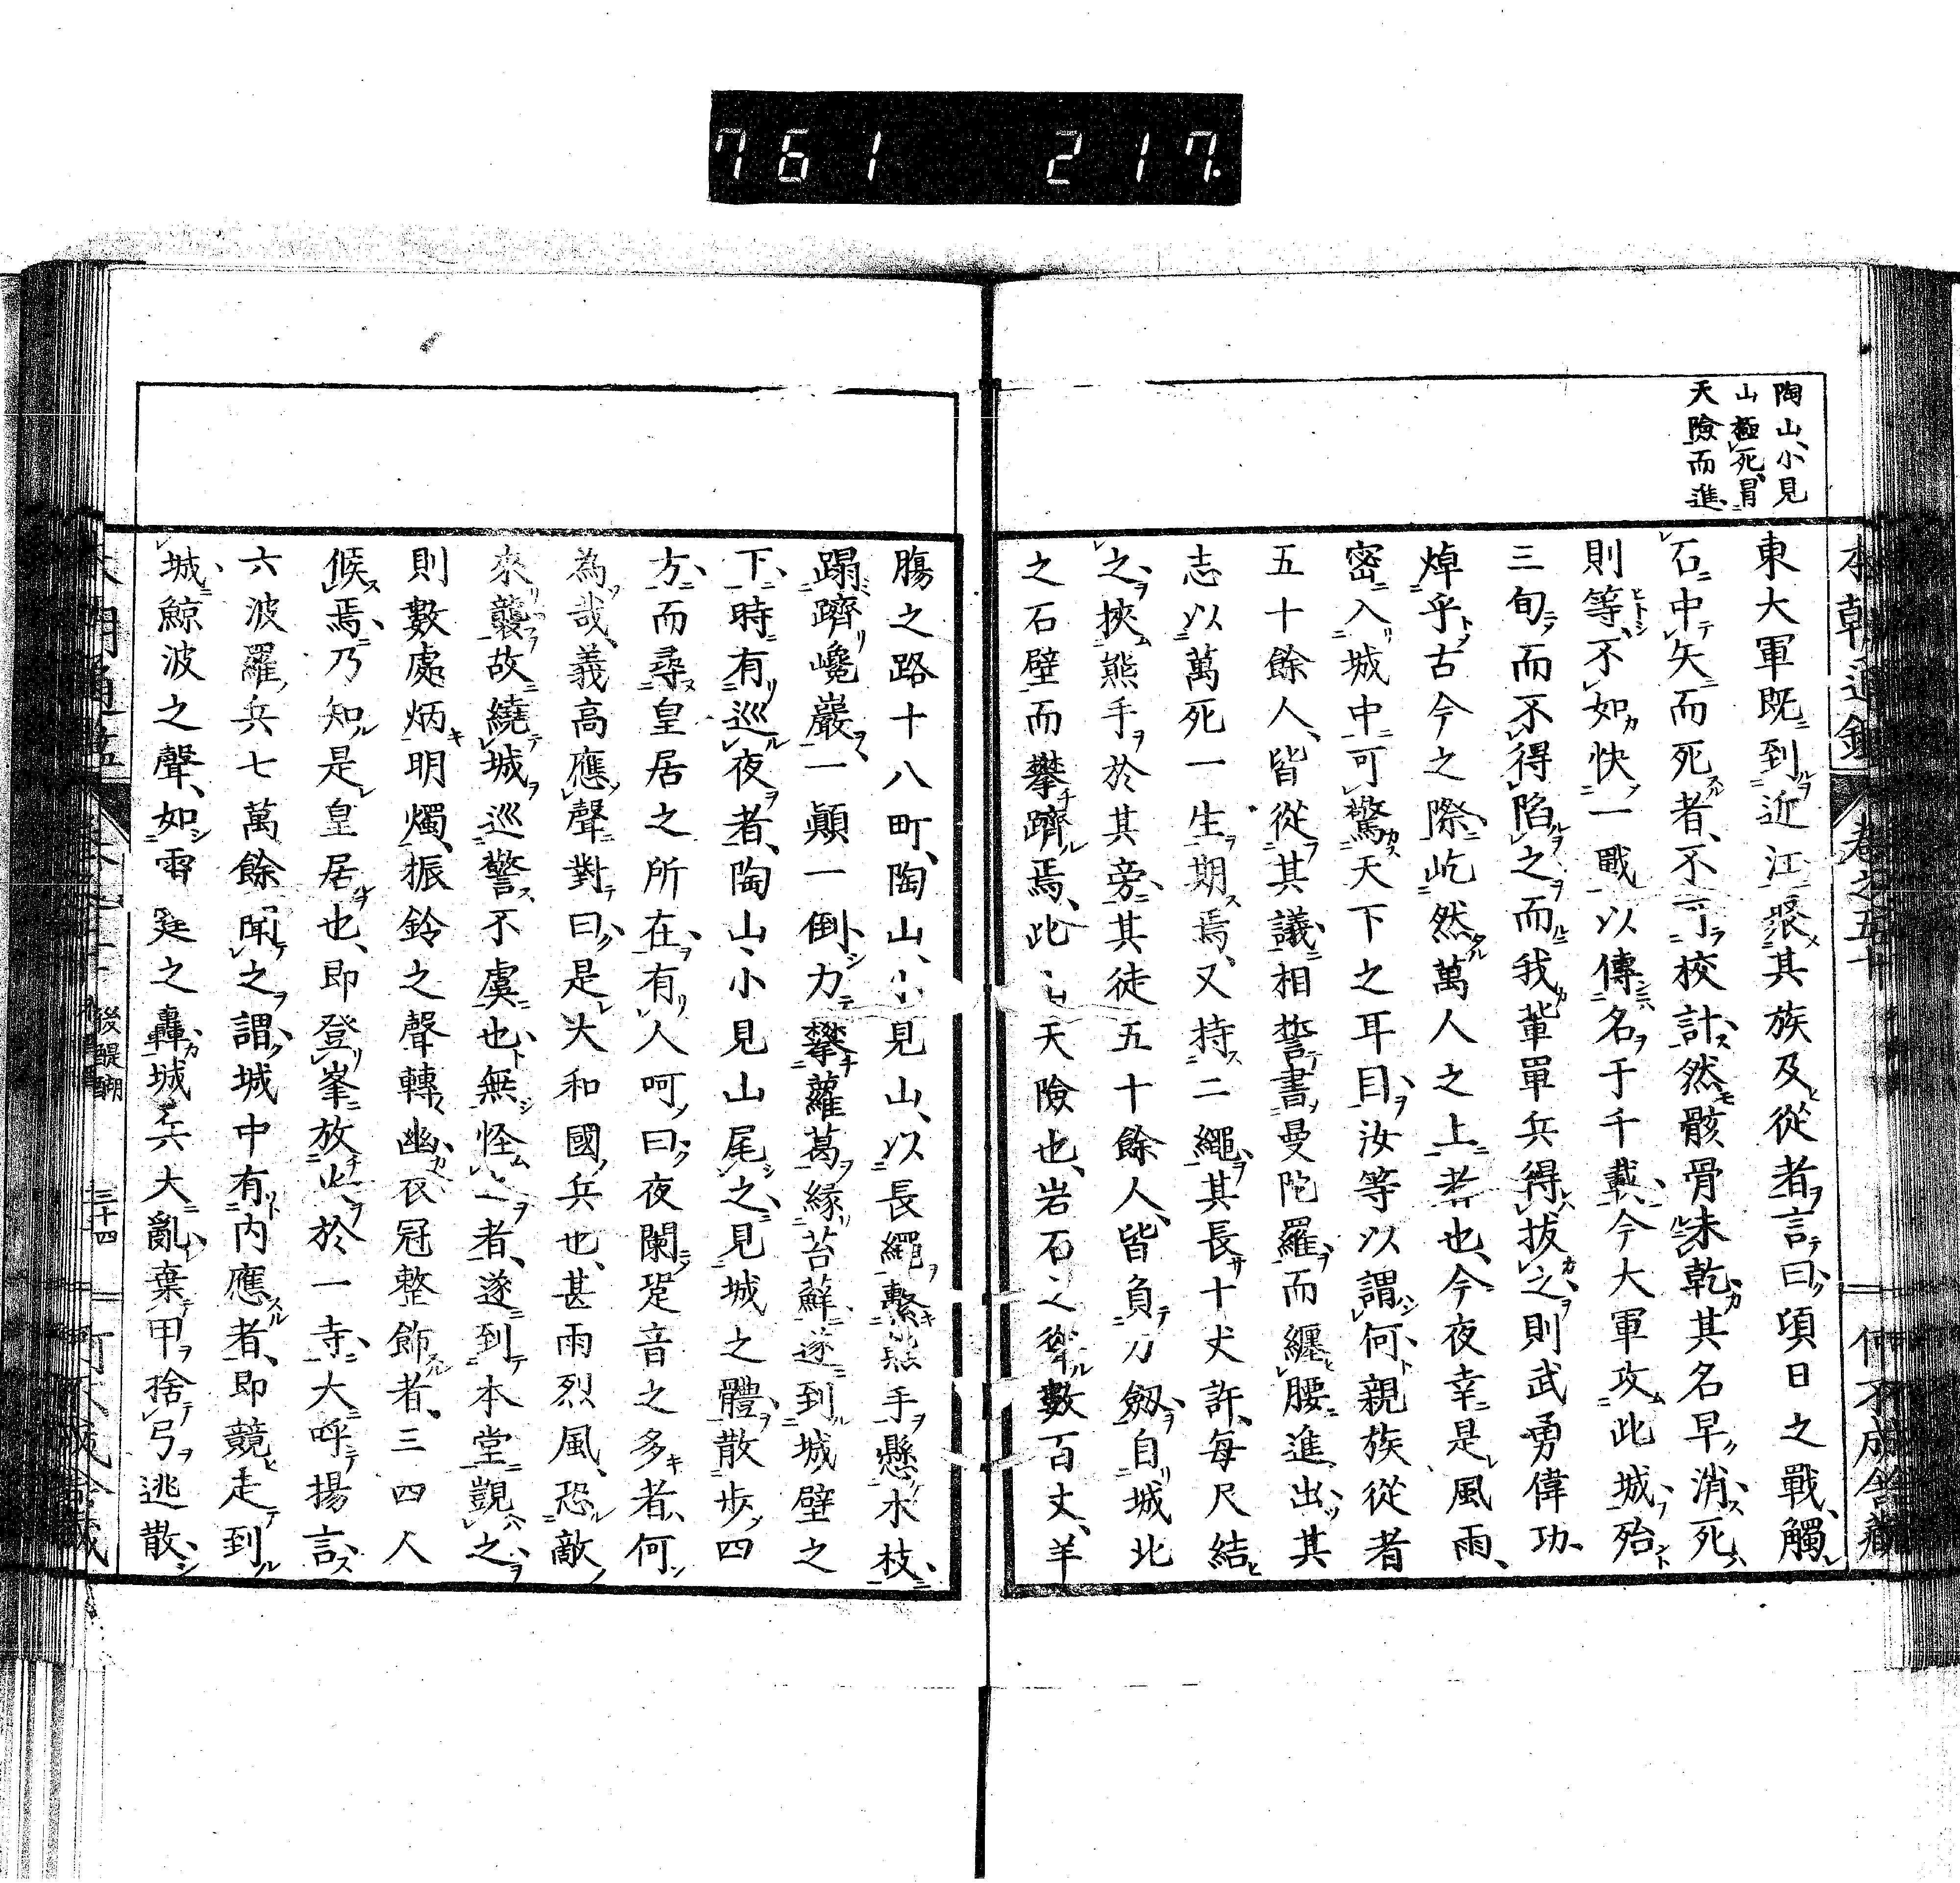 761 217
陶山、小見
山極死、冒
天險而進、
本朝通鑑 卷之五十
何不成舍藏
東大軍既到近江、聚其族及從者言曰、頃日之戰、觸
石中矢而死者、不可校計、然骸骨未乾、其名早消、死
則等、不如快一戰以傳名于千載、今大軍攻此城、殆
三旬而不得陷之、而我輩單兵得拔之、則武勇偉功、
焯乎古今之際、屹然萬人之上者也、今夜幸是風雨、
密入城中、可驚天下之耳目、汝等以謂何、親族從者
五十餘人、皆從其議、相誓書曼陀羅而纏腰進出、其
志以萬死一生期焉、又持二繩、其長十丈許、每尺結
之、挾熊手於其旁、其徒五十餘人、皆負刀劔、自城北
之石壁而攀躋焉、此 天險也、岩石之 數百丈、羊
腸之路十八町、陶山、小見山、以長繩繫熊手懸木枝、
蹋躋巉巖、一顚一倒、力攀蘿葛、緣苔蘚、遂到城壁之
下、時有巡夜者、陶山、小見山尾之、見城之體、散步四
方、而尋皇居之所在、有人呵曰、夜闌跫音之多者、何
為哉、義高應聲對曰、是大和國兵也、甚雨烈風、恐敵
來襲、故繞城巡警不虞也、無怪之者、遂到本堂覬之、
則數處炳明燭、振鈴之聲轉幽、衣冠整飾者、三四人
候焉、乃知是皇居也、即登峯放火於一寺、大呼揚言、
六波羅兵七萬餘聞之、謂城中有內應者、即競走到
城、鯨波之聲、如雷霆之轟、城兵大亂、棄甲捨弓逃散、
後醍醐 三十四